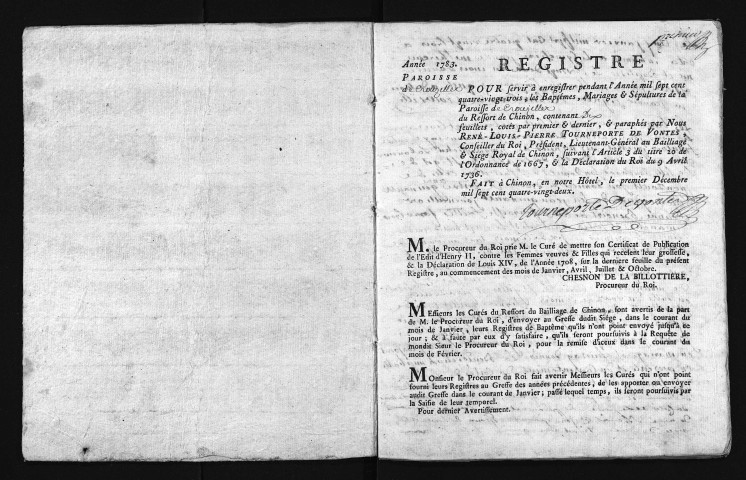 Année 1783.
PAROISSE
de Crouzilles
REGISTRE
POUR servir à enregistrer pendant l'Année mil sept cent
quatre-vingt-trois, les Baptêmes, Mariages & Sépultures de la
Paroisse de Crouzilles
du Ressort de Chinon, contenant Dix
feuillets, cotés par premier & dernier, & paraphés par Nous
RENÉ-LOUIS-PIERRE TOURNEPORTE DE VONTES,
Conseiller du Roi, Président, Lieutenant-Général au Bailliage
& Siege Royal de Chinon, suivant l'Article 3 du titre 20 de
l'Ordonnance de 1667, & la Déclaration du Roi du 9 Avril
1736.
FAIT à Chinon, en notre Hôtel, le premier Décembre
mil sept cent quatre-vingt-deux.
Tourneporte Devontes
M. le Procureur du Roi prie M. le Curé de mettre son Certificat de Publication
de l'Edit d'Henry II, contre les Femmes veuves & Filles qui recelent leur grossesse,
& la Déclaration de Louis XIV, de l'Année 1708, sur la derniere feuille du présent
Registre, au commencement des mois de Janvier, Avril, Juillet & Octobre.
CHESNON DE LA BILLOTTIÈRE,
Procureur du Roi.
MEssieurs les Curés du Ressort du Bailliage de Chinon, sont avertis de la part
de M. le Procureur du Roi, d'envoyer au Greffe dudit Siége, dans le courant du
mois de Janvier, leurs Registres de Baptême qu'ils n'ont point envoyé jusqu'à ce
jour; & à faute par eux d'y satisfaire, qu'ils seront poursuivis à la Requête de
mondit Sieur le Procureur du Roi, pour la remise d'iceux dans le courant du
mois de Février.
MOnsieur le Procureur du Roi fait avertir Messieurs les Curés qui n'ont point
fourni leurs Registres au Greffe des années précédentes, de les apporter ou envoyer
audit Greffe dans le courant de Janvier; passé lequel temps, ils seront poursuivis par
la Saisie de leur temporel.
Pour dernier Avertissement.